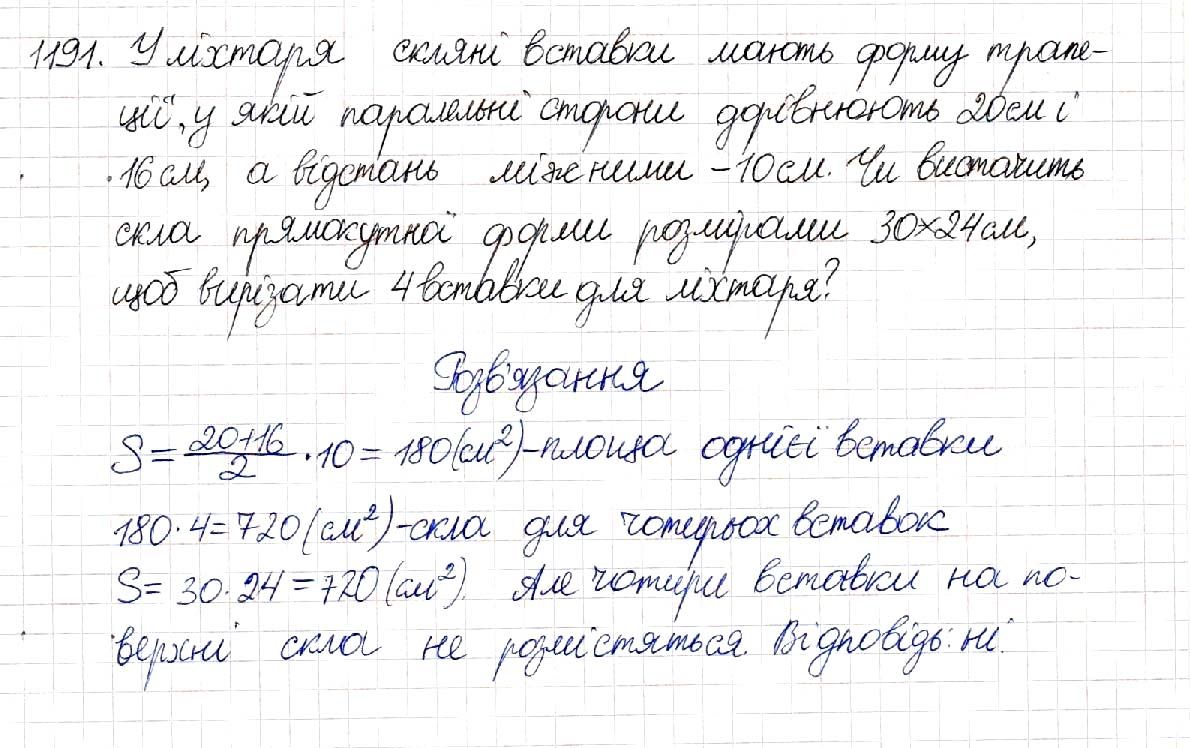 1191. У ліхтаря скляні вставки мають форму трапе-
ції, у якій паралельні сторони дорівнюють 20см і
16см, а відстань між ними – 10см. Чи вистачить
скла прямокутної форми розмірами 30×24см,
щоб вирізати 4 вставки для ліхтаря?
Розв'язання
S = (20+16)/2 · 10 = 180 (см²) – площа однієї вставки
180 · 4 = 720 (см²) – скла для чотирьох вставок
S = 30 · 24 = 720 (см²). Але чотири вставки на по-
верхні скла не розмістяться. Відповідь: ні.